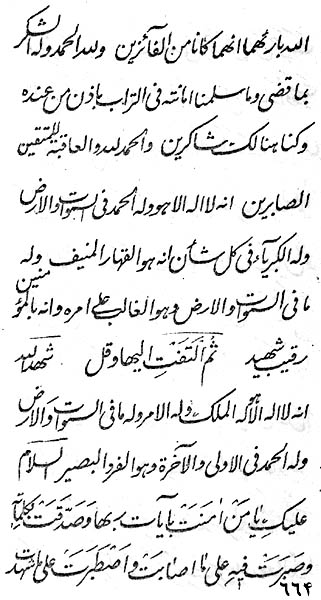 الله بارئهما انهما كانا من الفائزين ولله الحمد وله الشكر
بما قضى وما سلمنا امانته فى التراب باذن من عنده
وكنا هنالك شاكرين والحمد لله والعاقبة للمتقين
الصابرين انه لا اله الا هو وله الحمد فى السموات والارض
وله الكبرياء فى كل شأن انه هو القهار المنيف وله
ما فى السموات والارض وهو الغالب على امره وانه بالمؤمنين
رقيب شهيد ثم التفت اليها وقل شهد الله
انه لا اله الا هو له الملك وله الامر وله ما فى السموات والارض
وله الحمد فى الاولى والآخرة وهو الفرد البصير السلام
عليك يا من امنت بايات ربها وصدقت بكلماته
وصبرت فيه على ما اصابت واصطبرت على ما شهدت
٦٦٤